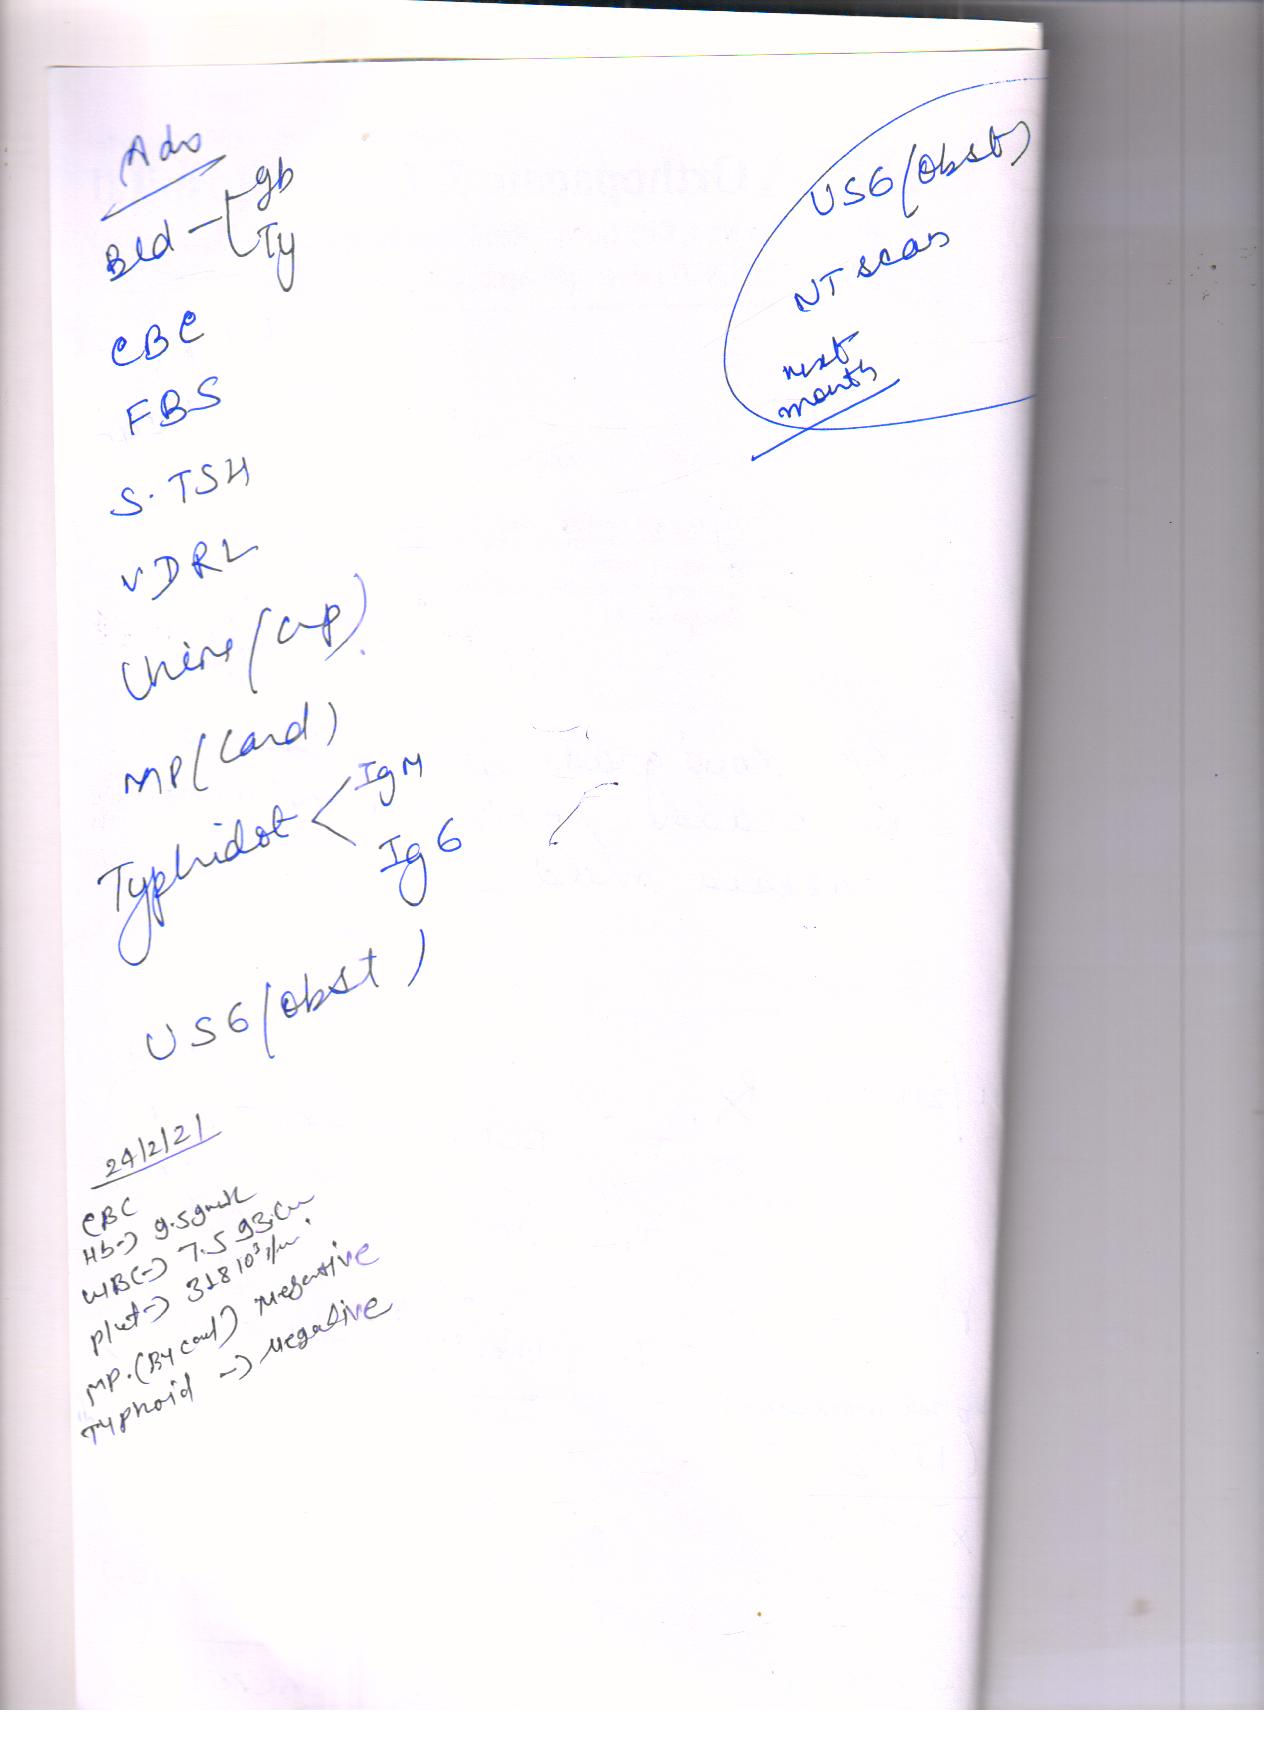 Adv
Bld - gp
Ty
CBC
FBS
S. TSH
VDRL
Urine (cup)
MP (Card)
Typhidot < IgM
IgG
USG (obst)
USG (obst)
NT scan
next
month
24/2/21
CBC
Hb -> 9.5 gm%
WBC -> 7.593.Cu
plat -> 318 10³
MP. (By card) Negative
Typhoid -> Negative